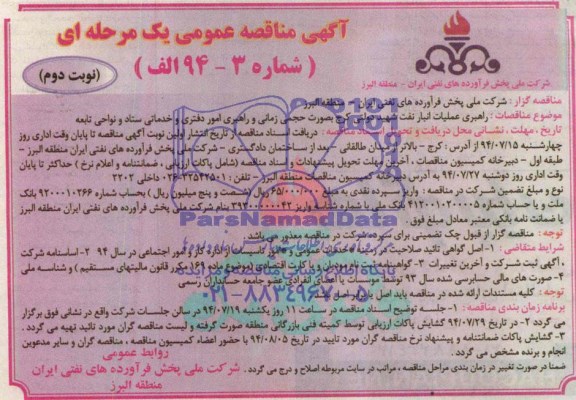 آگهی مناقصه عمومی یک مرحله ای
( شماره ۳ - ۹۴ الف )
(نوبت دوم)
شرکت ملی پخش فرآورده های نفتی ایران - منطقه البرز
مناقصه گزار : شرکت ملی پخش فرآورده های نفتی ایران - منطقه البرز
موضوع مناقصات : راهبری عملیات انبار نفت شهید دولتی کرج بصورت حجمی زمانی و راهبری امور دفتری و خدماتی ستاد و نواحی تابعه
تاریخ ، مهلت ، نشانی محل دریافت و تحویل اسناد مناقصه : دریافت اسناد مناقصه از تاریخ انتشار اولین نوبت آگهی مناقصه تا پایان وقت اداری روز
چهارشنبه ۹۴/۰۷/۱۵ از آدرس : کرج - بالاتر از میدان طالقانی - بعد از ساختمان دادگستری - شرکت ملی پخش فرآورده های نفتی ایران منطقه البرز -
طبقه اول - دبیرخانه کمیسیون مناقصات . آخرین مهلت تحویل پیشنهادات و اسناد مناقصه (شامل پاکات ارزیابی ، ضمانتنامه و اعلام نرخ ) حداکثر تا پایان
وقت اداری روز دوشنبه ۹۴/۰۷/۲۷ در دبیرخانه کمیسیون مناقصات منطقه البرز - تلفن : ۳۲۵۴۲۵۰۱-۰۲۶ داخلی ۲۲۰۲
نوع و مبلغ تضمین شرکت در مناقصه : واریز سپرده نقدی به مبلغ ۶۵/۰۰۰/۰۰۰ ریال (شصت و پنج میلیون ریال) بحساب شماره ۹۲۰۰۰۱۰۲۶۶ بانک
ملت و یا حساب شماره ۴۱۲۰۰۱۰۲۰۰۰۰۵ بانک ملی با شماره شناسه واریز ۳۹۳۰۰۰۰۰۰۰۴۲ بنام شرکت ملی پخش فرآورده های نفتی ایران منطقه البرز
یا ضمانت نامه بانکی معتبر معادل مبلغ فوق .
توجه : مناقصه گزار از قبول چک تضمینی برای سپرده شرکت در مناقصه معذور می باشد .
شرایط متقاضی : ۱- اصل گواهی تائید صلاحیت در رشته خدمات عمومی و مجوز تاسیسات از اداره کار و امور اجتماعی در سال ۹۴ ۲- اساسنامه شرکت
، آگهی ثبت شرکت و آخرین تغییرات ۳- گواهینامه ثبت نام و کد اقتصادی (موضوع ماده ۱۶۹ مکرر قانون مالیتهای مستقیم ) و شناسه ملی
۴- صورت های مالی حسابرسی شده سال ۹۳ توسط موسسات یا اعضای انفرادی عضو جامعه حسابداران رسمی
توجه : کلیه مستندات ارائه شده در مناقصه باید اصل یا برابر اصل
برنامه زمان بندی مناقصه : ۱- جلسه توضیح اسناد مناقصه در ساعت ۱۱ روز یکشنبه ۹۴/۰۷/۱۹ در سالن جلسات شرکت واقع در نشانی فوق برگزار
می گردد ۲- در تاریخ ۹۴/۰۷/۲۹ گشایش پاکات ارزیابی توسط کمیته فنی بازرگانی منطقه صورت گرفته و لیست مناقصه گران مورد تائید تهیه می گردد .
۳- گشایش پاکات ضمانتنامه و پیشنهاد نرخ مناقصه گران مورد تایید در تاریخ ۹۴/۰۸/۰۵ با حضور اعضاء کمیسیون مناقصه ، مناقصه گران و سایر مدعوین
انجام و برنده مشخص می گردد .
ضمنا در صورت تغییر در زمان بندی مراحل مناقصه ، مراتب در سایت مربوطه اصلاح و درج می گردد .
روابط عمومی
شرکت ملی پخش فرآورده های نفتی ایران
منطقه البرز
ParsNamadData
۰۲۱-۸۸۳۴۹۶۷۰-۵